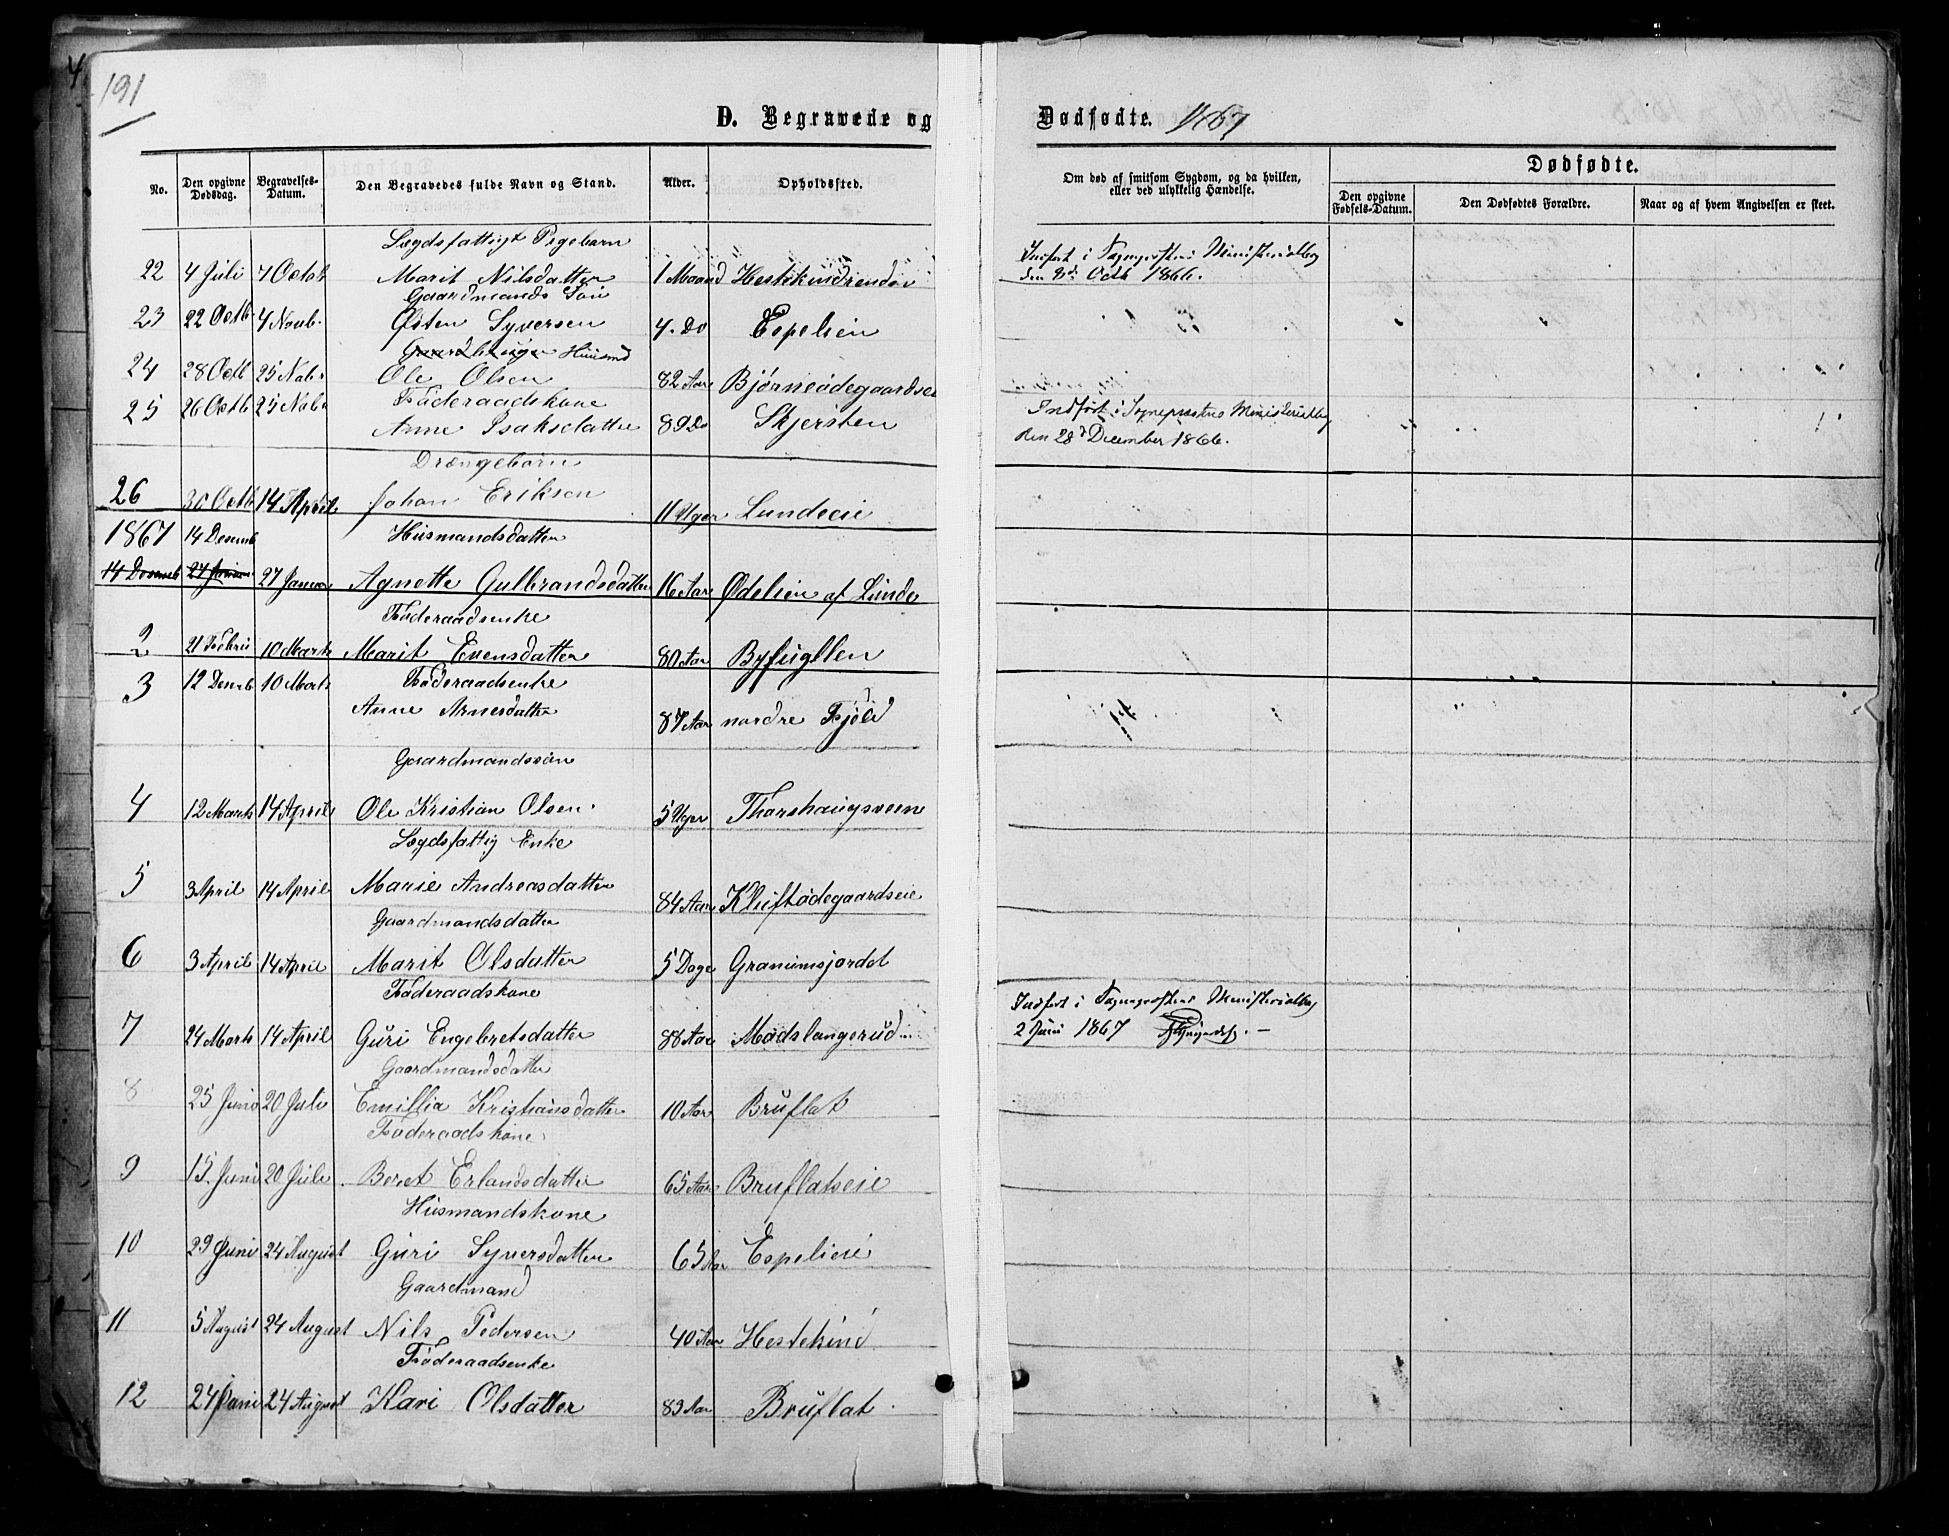 191
D. Begravede og Dødfødte. 1867
No. Den opgivne Dødsdag. Begravelses-Datum. Den Begravedes fulde Navn og Stand. Alder. Opholdssted. Om død af smitsom Sygdom, og da hvilken, eller ved ulykkelig Hændelse. Dødfødte.
Den opgivne Fødsels-Datum. Den Dødfødtes Forældre. Naar og af hvem Angivelsen er skeet.
Lægdsfattigt Pigebarn
22 4 Juli 7 Octob Marit Nilsdatter 1 Maaned Indført i Sognepræstens Ministerialbog
den 8de Octb 1866.
Gaardmands Søn
23 22 Octb. 4 Novb. Østen Syversen 4. Do Espelien
Gaardbruger Huusmd
24 28 Octb 25 Novb. Ole Olsen 82 Aar Bjørneødegaardseie
Føderaadskone
25 26 Octb 25 Novb Anne Isaksdatter 89 Do Skjersten Indført i Sognepræstens Ministerialbog
den 28d December 1866.
Drængebarn
26 30 Octb 14 April Johan Eriksen 11 Uger Lundseie
1867 14 Desemb Husmandsdatter
14 Desemb 27 Januar 27 Januar Agnette Gulbrandsdatter 16 Aar Ødelien af Lunde
Føderaadsenke
2 21 Febru 10 Marts Marit Evensdatter 80 Aar Byfugllen
3 12 Desemb 10 Marts Føderaadsenke
Anne Arnesdatter 87 Aar nordre Fjøld
Gaardmandssøn
4 12 Marts 14 April Ole Kristian Olsen. 5 Uger Thorshaugsveen
Lægdsfattig Enke
5 3 April 14 April Marie Andreasdatter 84 Aar Kluftødegaardseie
Gaardmandsdatter
6 3 April 14 April Marit Olsdatter 5 Dage Granumsjordet
Føderaadskone
7 24 Marts 14 April Guri Engebretsdatter 88 Aar Madslangerud Indført i Sognepræstens Ministerialbog
2 Juni 1867
Gaardmandsdatter
8 25 Juni 20 Juli Emillia Kristiansdatter 10 Aar Bruflat
Føderaadskone
9 15. Juni 20 Juli Beret Erlandsdatter 65 Aar Bruflatseie
Husmandskone
10 29 Juni 24 August Guri Syversdatter 65 Aar Espelieie
Gaardmand
11 5 August 24 August Nils Pedersen 40 Aar Hestekind
Føderaadsenke
12 24 Juni 24 August Kari Olsdatter 83 Aar Bruflat.